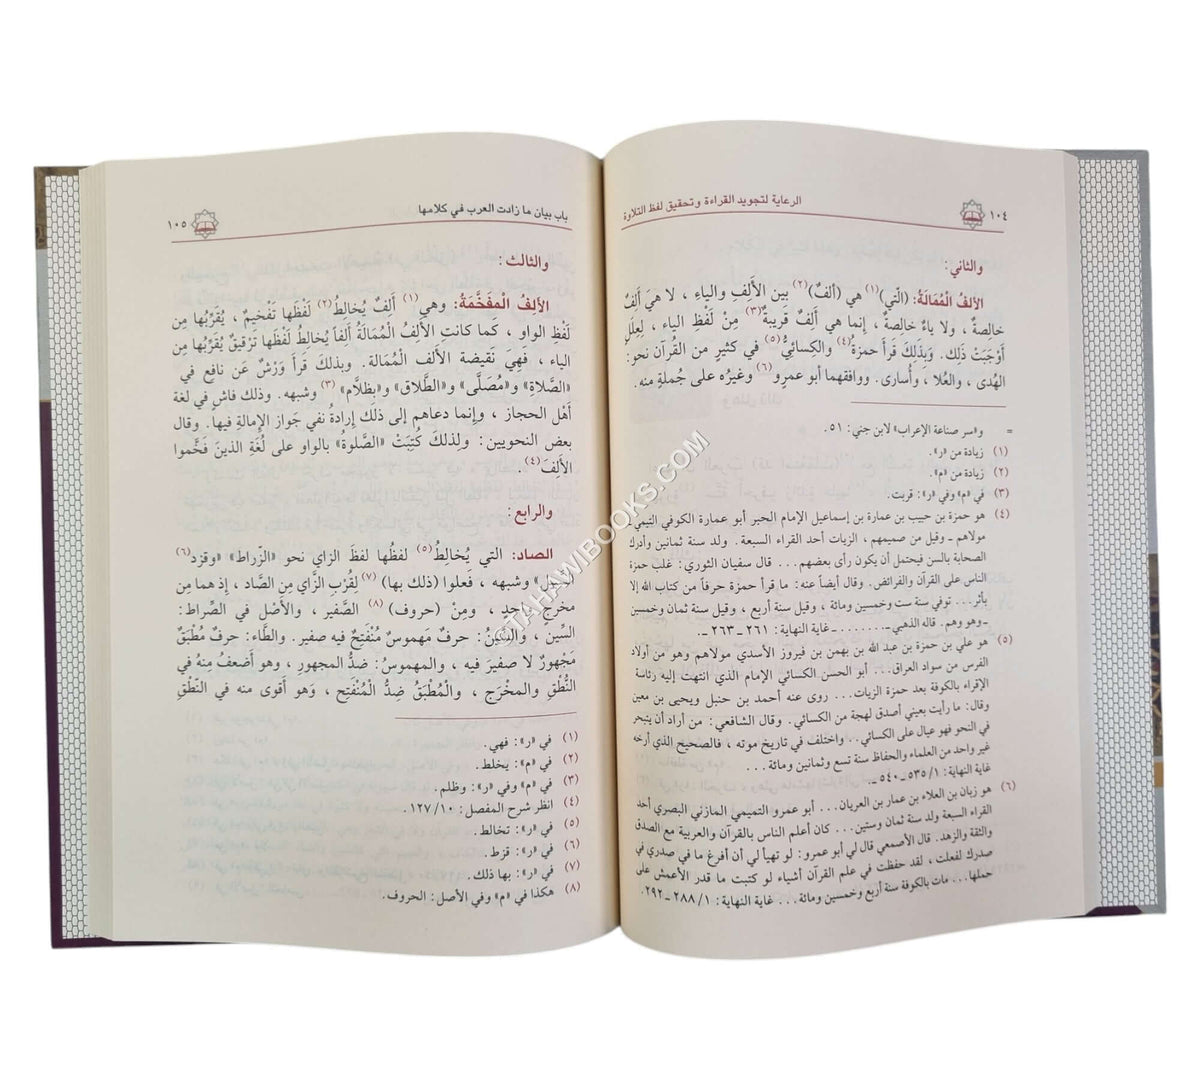 ١٠٤
الرعاية لتجويد القراءة وتحقيق لفظ التلاوة
والثاني:
الألفُ الْمُمَالَةُ: (الّتي)(١) هي (ألفٌ)(٢) بين الألَفِ والياءِ ، لا هيَ ألِفٌ
خالِصةٌ ، ولا ياءٌ خالِصةٌ ، إنما هي ألَفٌ قَريبةٌ(٣) مِنْ لَفْظِ الياء ، لِعِلَلٍ
أوْجَبَتْ ذلِك. وَبِذَلِكَ قَرأ حمزةُ(٤) والكسائيُّ(٥) في كثيرٍ من القُرآن نحو:
الهُدى ، والعُلا ، وأُسارى. ووافقهما أبو عمرو(٦) وغيرُه على جُملةٍ منه.
= و«سر صناعة الإعراب» لابن جني: ٥١.
(١) زيادة من «ر».
(٢) زيادة من «م».
(٣) في «م» وفي «ر»: قربت.
(٤) هو حمزة بن حبيب بن عمارة بن إسماعيل الإمام الحبر أبو عمارة الكوفي التيمي
مولاهم ـ وقيل من صميمهم ، الزيات أحد القراء السبعة. ولد سنة ثمانين وأدرك
الصحابة بالسن فيحتمل أن يكون رأى بعضهم... قال سفيان الثوري: غلب حمزة
الناس على القرآن والفرائض. وقال أيضاً عنه: ما قرأ حمزة حرفاً من كتاب الله إلا
بأثر... توفي سنة ست وخمسين ومائة ، وقيل سنة أربع ، وقيل سنة ثمان وخمسين
ـ وهو وهم. قاله الذهبي ـ........ غاية النهاية: ٢٦١ ـ ٢٦٣ ـ.
(٥) هو علي بن حمزة بن عبد الله بن بهمن بن فيروز الأسدي مولاهم وهو من أولاد
الفرس من سواد العراق... أبو الحسن الكسائي الإمام الذي انتهت إليه رئاسة
الإقراء بالكوفة بعد حمزة الزيات... روى عنه أحمد بن حنبل ويحيى بن معين
وقال: ما رأيت بعيني أصدق لهجة من الكسائي.. وقال الشافعي: من أراد أن يتبحر
في النحو فهو عيال على الكسائي.. واختلف في تاريخ موته ، فالصحيح الذي أرخه
غير واحد من العلماء والحفاظ سنة تسع وثمانين ومائة...
غاية النهاية: ١/ ٥٣٥ ـ ٥٤٠ ـ.
(٦) هو زبان بن العلاء بن عمار بن العريان... أبو عمرو التميمي المازني البصري أحد
القراء السبعة ولد سنة ثمان وستين... كان أعلم الناس بالقرآن والعربية مع الصدق
والثقة والزهد. قال الأصمعي قال لي أبو عمرو: لو تهيأ لي أن أفرغ ما في صدري في
صدرك لفعلت ، لقد حفظت في علم القرآن أشياء لو كتبت ما قدر الأعمش على
حملها... مات بالكوفة سنة أربع وخمسين ومائة... غاية النهاية: ١/ ٢٨٨ ـ ٢٩٢.
باب بيان ما زادت العرب في كلامها
١٠٥
والثالث:
الألِفُ الْمفَخَّمَةُ: وهي(١) ألَفٌ يُخالطُ(٢) لَفْظَها تَفْخيم ، يُقَرِّبُها مِن
لَفْظِ الواوِ ، كَما كانت الألِفُ الْمُمَالَةُ ألِفاً يُخالطُ لَفْظَها تَرْقيقٌ يُقرِّبُها من
الياء ، فهِيَ نَقيضة الألَف الْمُمَالة. وبذلك قَرأ وَرْشٌ عَن نافع في
«الصَّلاة» و«مُصَلَّى» و«الطَّلاق» و«بِظلَّام»(٣) وشبهه. وذلك فاشٍ في لغة
أهْل الحجاز ، وإنما دعاهم إلى ذلك إرادةُ نفي جَواز الإمالةِ فيها. وقال
بعض النحويين: ولِذلكَ كُتِبَتْ «الصَّلوةُ» بالواو على لُغَةِ الذينَ فَخَّموا
الألَفَ(٤).
والرابع:
الصاد: التي يُخالطُ(٥) لفظُها لفظَ الزاي نحو «الزّراط» «وقزد(٦)
وشبهه ، فعلوا (ذلك بها)(٧) لِقُربِ الزَّاي مِن الصَّاد ، إذ هما من
مخرج واحِد ، ومِنْ (حروف)(٨) الصَّفير ، والأصْل في الصِّراط:
السِّين ، والسِّينُ: حرفٌ مَهموسٌ مُنْفَتِحٌ فيه صفير. والطَّاء: حرفٌ مُطْبَقٌ
مَجْهورٌ لا صَفيرَ فيه ، والمهموسُ: ضدُّ المجهورِ ، وهو أضعفُ مِنهُ في
النُّطْقِ والمخْرَجِ ، والْمُطْبَقُ ضِدُّ الْمُنْفَتِح ، وَهو أقوى منه في النّطْقِ
(١) في «ر»: فهي.
(٢) في «م»: يخلط.
(٣) في «م» وفي «ر»: وظلم.
(٤) انظر شرح المفصل: ١٠/ ١٢٧.
(٥) في «ر»: تخالط.
(٦) في «ر»: قزط.
(٧) في «ر»: بها ذلك.
(٨) هكذا في «م» وفي الأصل: الحروف.
TAHAWIBOOKS.COM